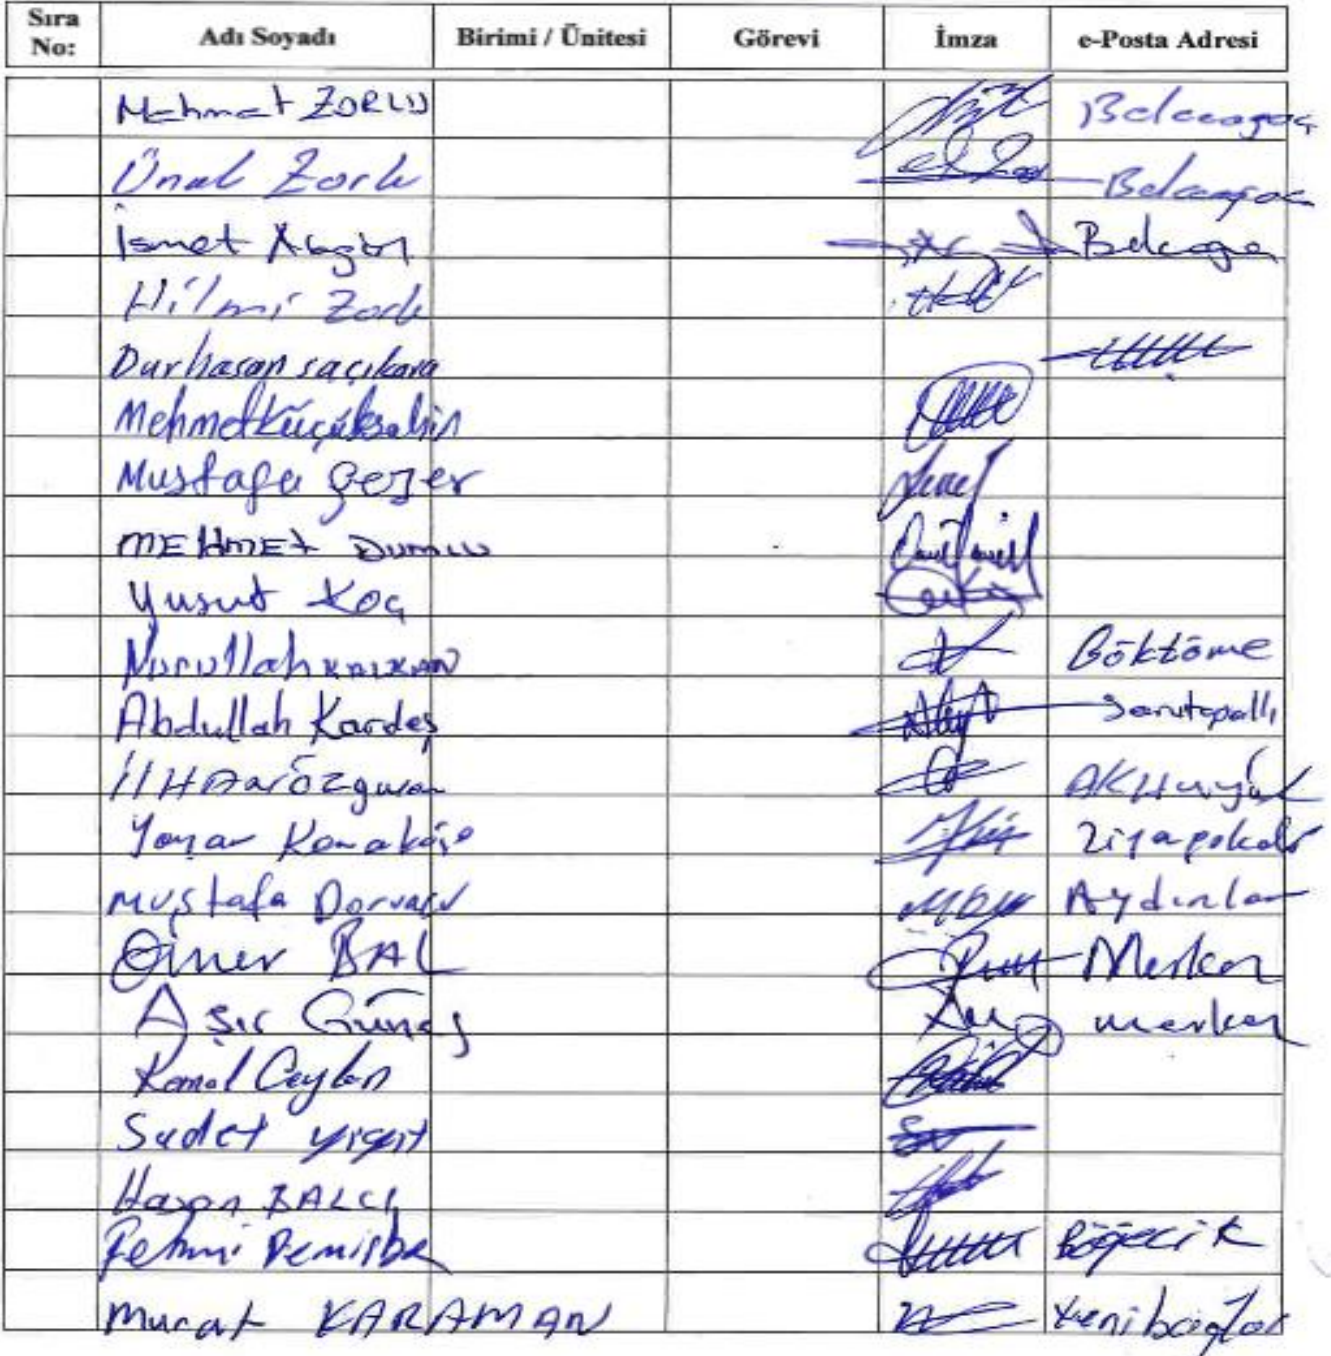 Sıra No: Adı Soyadı Birimi / Ünitesi Görevi İmza e-Posta Adresi
Mehmet ZORLU Belceağaç
Ünal Zorlu Belceağaç
İsmet Belceağa
Hilmi Zorlu
Durhasan saçıkara
Mehmet Küçükşahin
Mustafa Gezer
MEHMET DUMLU
Yusuf Koç
Nurullah KALKAN Göktöme
Abdullah Kardeş Sarıtopallı
İLHAN Özguven AKHuyük
Yaşar Karaköse
Mustafa Aydınlar
Ömer BAL Merkez
Aşır Güneş merkez
Kemal Ceylan
Sudet yiğit
Hasan BALCI
Fehmi Demirba Böğecik
Murat KARAMAN Yenibağlar